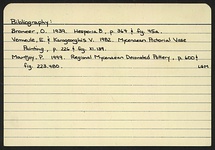 Bibliography:
Broneer, O. 1939. Hesperia 8, p. 369 & fig. 45a.
Vermeule, E. & Karageorghis V. 1982. Mycenaean Pictorial Vase
Painting, p. 226 & XI.139.
Mountjoy, P. 1999. Regional Mycenaean Decorated Pottery, p. 600 &
fig. 223.480.